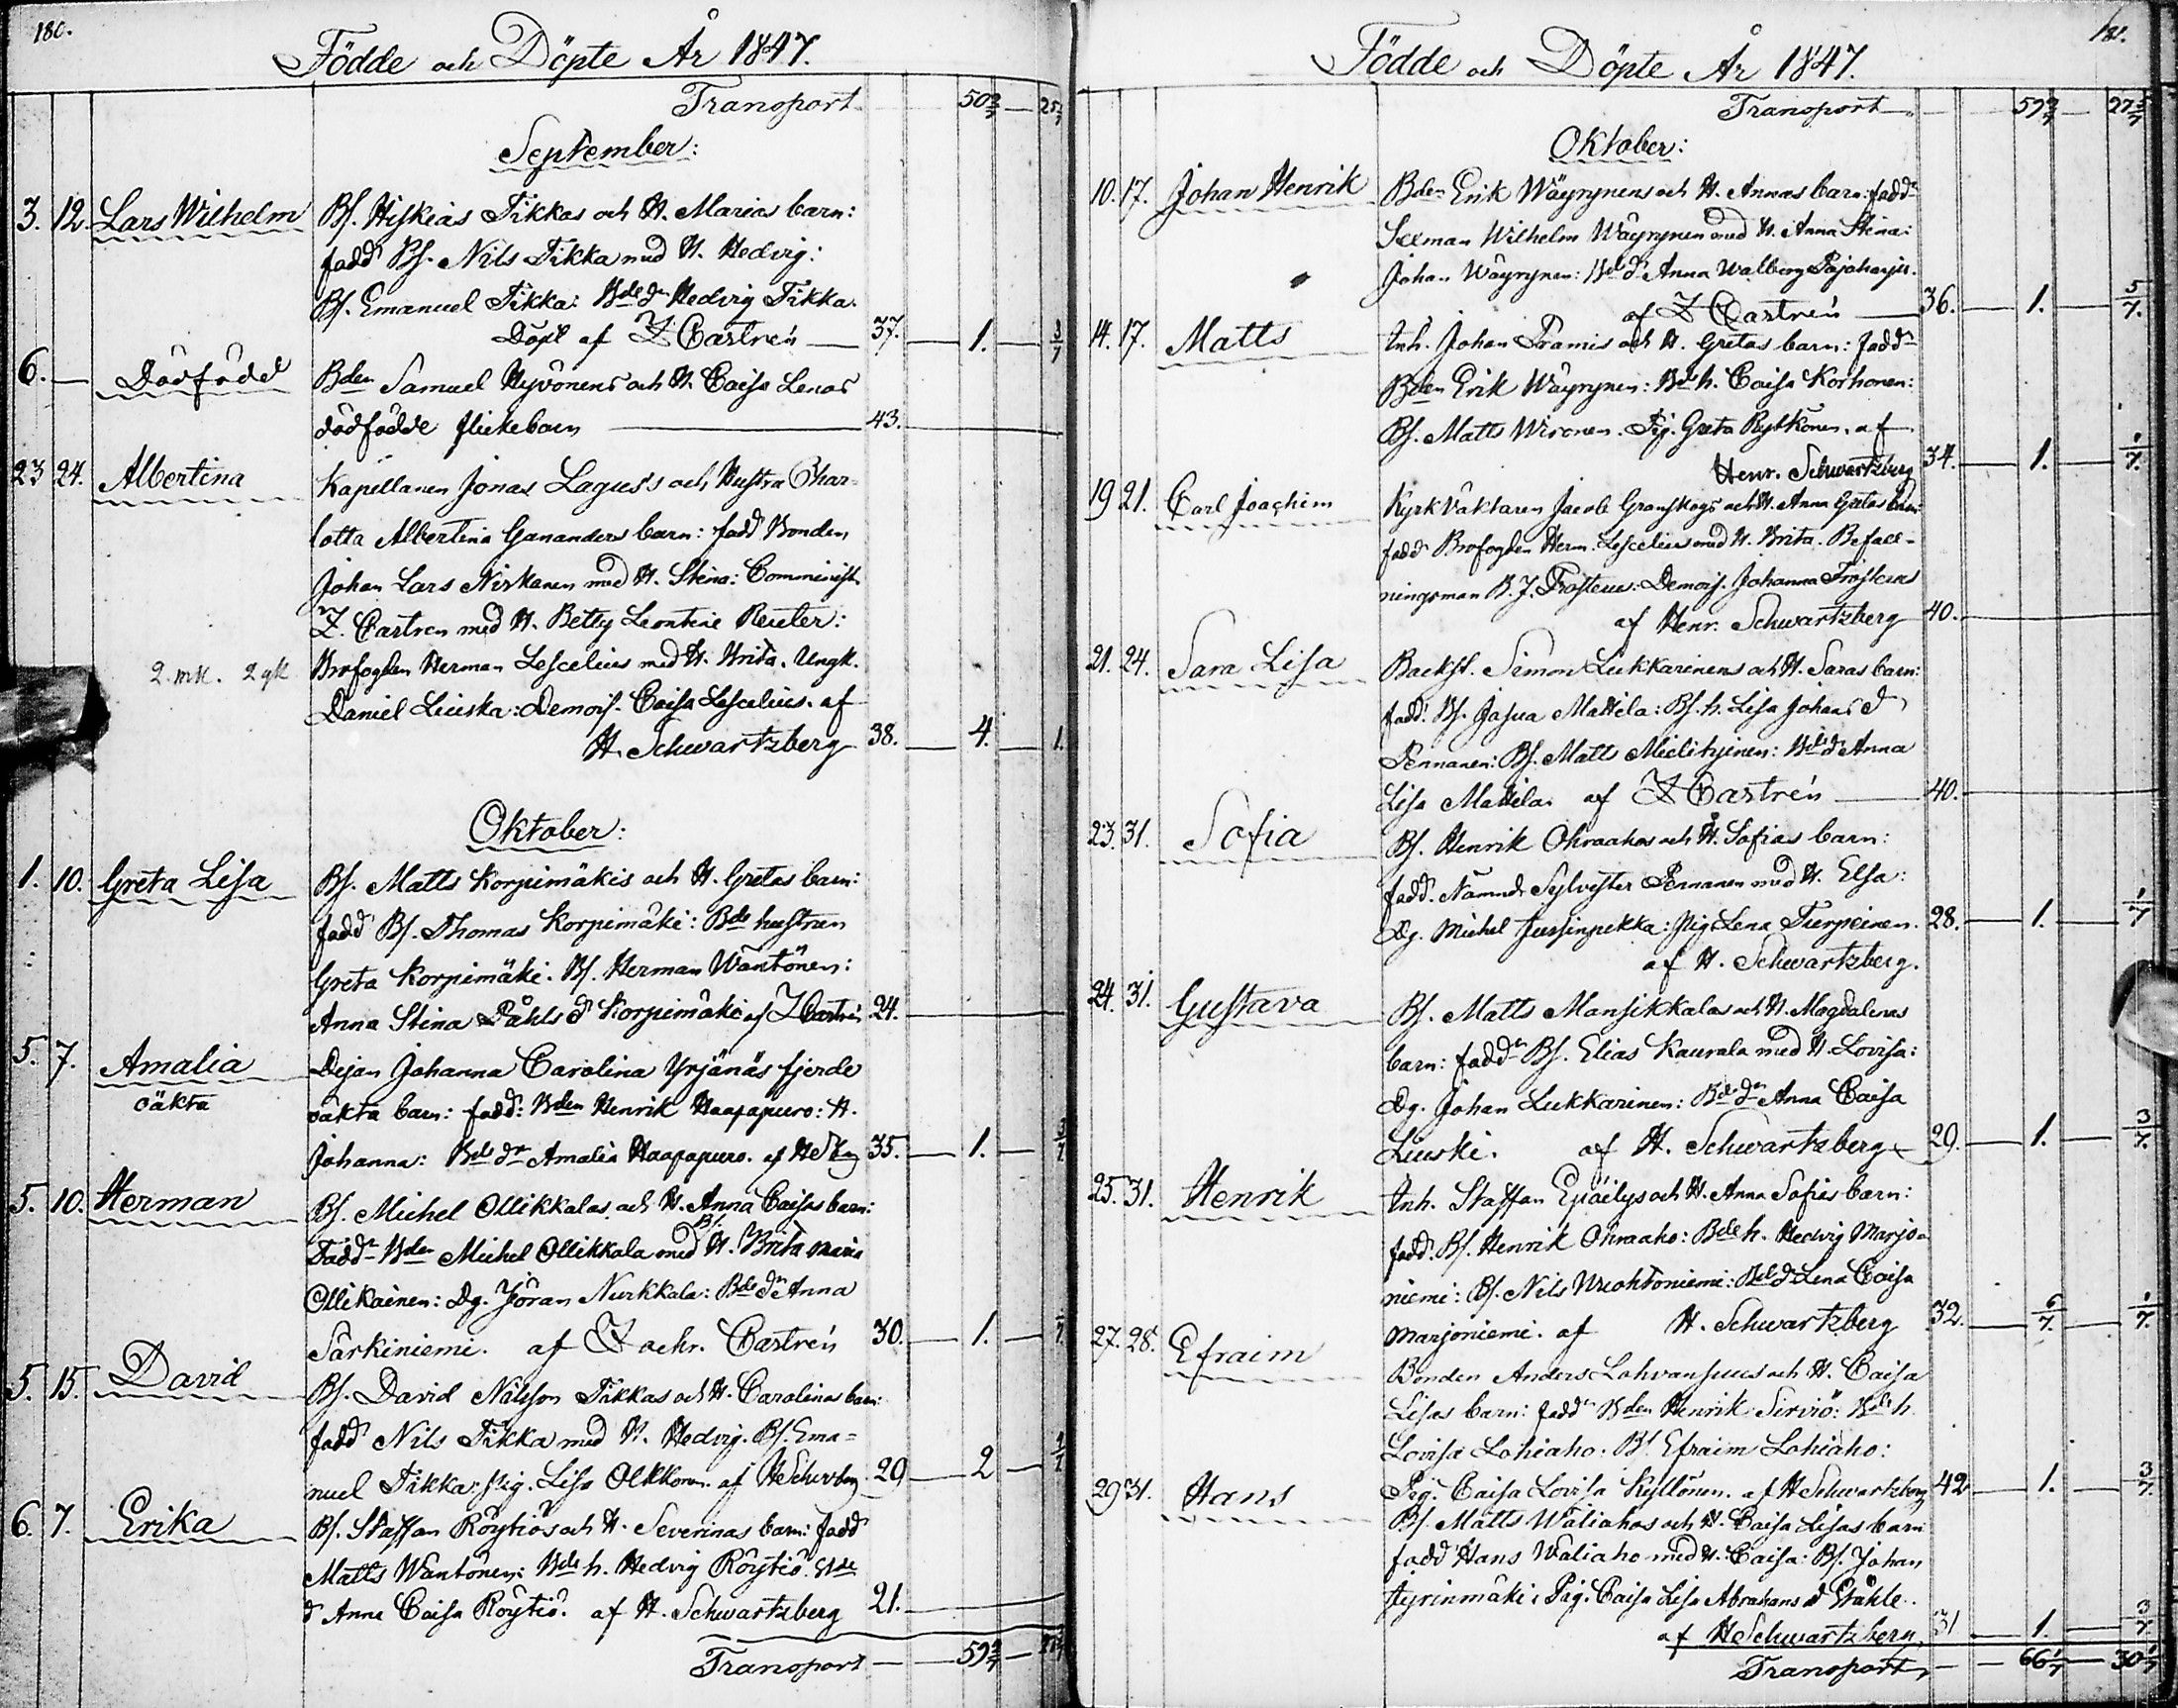 180.
Födde och Döpte År 1847.
Transport 50 2/7 25
September:
3. 12. Lars Wilhelm Bf. Hiskias Tikkas och H. Marias barn:
fadd Bf. Nils Tikka med H. Hedvig:
Bf. Emanuel Tikka: Bde dr Hedvig Tikka.
Döpt af Z Castrén 37. 1. 3/7
6. Dödfödd Bden Samuel Hyvönens och H. Caisa Lenas
dödfödde flickebarn 43.
23 24. Albertina Kapellanen Jonas Lagus's och Hustru Char-
lotta Albertina Gananders barn: fadd Bonden
Johan Lars Niskanen med H. Stina: Comminist
Z. Castren med H. Betty Leontine Reuter:
2 mk. 2 qk Brofogden Herman Lescelius med H. Brita. Ungk.
Daniel Liuska: Demois. Caisa Lescelius. af
H. Schwartzberg 38. 4. 1.
Oktober:
1. 10. Greta Lisa Bf. Matts Korpimäkis och H. Gretas barn:
fadd Bf. Thomas Korpimäki: Bde hustrun
Greta Korpimäki. Bf. Herman Wäntönen:
Anna Stina Påhls d Korpimäki af Z Castrén 24.
5. 7. Amalia Dejan Johanna Carolina Yrjänäs fjerde
oäkta oäkta barn: fadd: Bden Henrik Haapapuro: H.
Johanna: Bde dr Amalia Haapapuro. af H 35. 1. 3/7
5. 10. Herman Bf. Michel Ollikkalas och H. Anna Caisas barn:
Fadd Bden Michel Ollikkala med Bf. H. Brita Maria
Ollikainen: Dg. Jöran Nurkkala: Bde dr Anna
Särkiniemi. af Zachr. Castrén 30. 1.
5. 15. David Bf. David Nilsson Tikkas och H. Carolinas barn:
fadd Nils Tikka med H. Hedvig. Bf. Ema-
nuel Tikka: Pig. Lisa Olkkonen. af H 29 2
6. 7. Erika Bf. Staffan Röytiös och H. Severinas barn: fadd
Matts Wäntönen: Bde h. Hedvig Röytiö. Bde
d Anna Caisa Röytiö. af H. Schwartzberg 21.
Transport 59 2/7
181.
Födde och Döpte År 1847.
Transport 59 2/7 27 5/7
Oktober:
10. 17. Johan Henrik Bden Erik Wäyrynens och H. Annas barn: fadd
Sexman Wilhelm Wäyrynen med H. Anna Stina:
Johan Wäyrynen: Bde d Anna Walborg Pajaharju.
af Z Castrén 36. 1. 5/7.
14. 17. Matts Inh. Johan Pramis och H. Gretas barn: fadd
Bden Erik Wäyrynen: Bde h. Caisa Korhonen:
Bf. Matts Wironen. Pig. Greta Rytkönen. af
Henr. Schwartzberg 34. 1. 1/7.
19 21. Carl Joachim Kyrkväktaren Jacob Granskogs och H. Anna Gretas barn:
fadd Brofogden Herm. Lescelius med H. Brita. Befall-
ningsman B. J. Frosterus: Demois. Johanna Frosterus
af Henr. Schwartzberg 40.
21. 24. Sara Lisa Backst. Simon Lukkarinens och H. Saras barn:
fadd. Bf. Josua Mattila: Bf. h. Lisa Johans d
Pennanen: Bf. Matts Mielityinen: Bde d Anna
Lisa Mattila. af Z Castrén 40.
23. 31. Sofia Bf. Henrik Ohraahos och H. Sofias barn:
fadd. Nämnd. Sylvester Pennanen med H. Elsa:
Dg. Michel Jussinpekka: Pig. Lena Turpeinen. 28. 1. 1/7
af H. Schwartzberg.
24. 31. Gustava Bf. Matts Mansikkalas och H. Magdalenas
barn: fadd Bf. Elias Kaurala med H. Lovisa:
Dg. Johan Lukkarinen: Bde dr Anna Caisa
Liuski. af H. Schwartzberg 29. 1. 3/7.
25. 31. Henrik Inh. Staffan Epäilys och H. Anna Sofias barn:
fadd. Bf. Henrik Ohraaho: Bde h. Hedvig Marjo-
niemi: Bf. Nils Wuohtoniemi: Bde d Lena Caisa
Marjoniemi. af H. Schwartzberg 32. 6/7. 1/7.
27. 28. Efraim Bonden Anders Lohvansuus och H. Caisa
Lisas barn: fadd Bden Henrik Serviö: Bde h
Lovisa Lohiaho. Bf. Efraim Lohiaho:
Pig. Caisa Lovisa Kyllönen. af H Schwartzberg 42 1. 3/7.
29 31. Hans Bf. Matts Waliahos och H. Caisa Lisas barn
fadd Hans Waliaho med H. Caisa: Bf. Johan
Hyrinmäki: Pig. Caisa Lisa Abrahams d Ståhle.
af H Schwartzberg 31 1. 3/7
Transport 66 1/7 30 1/7